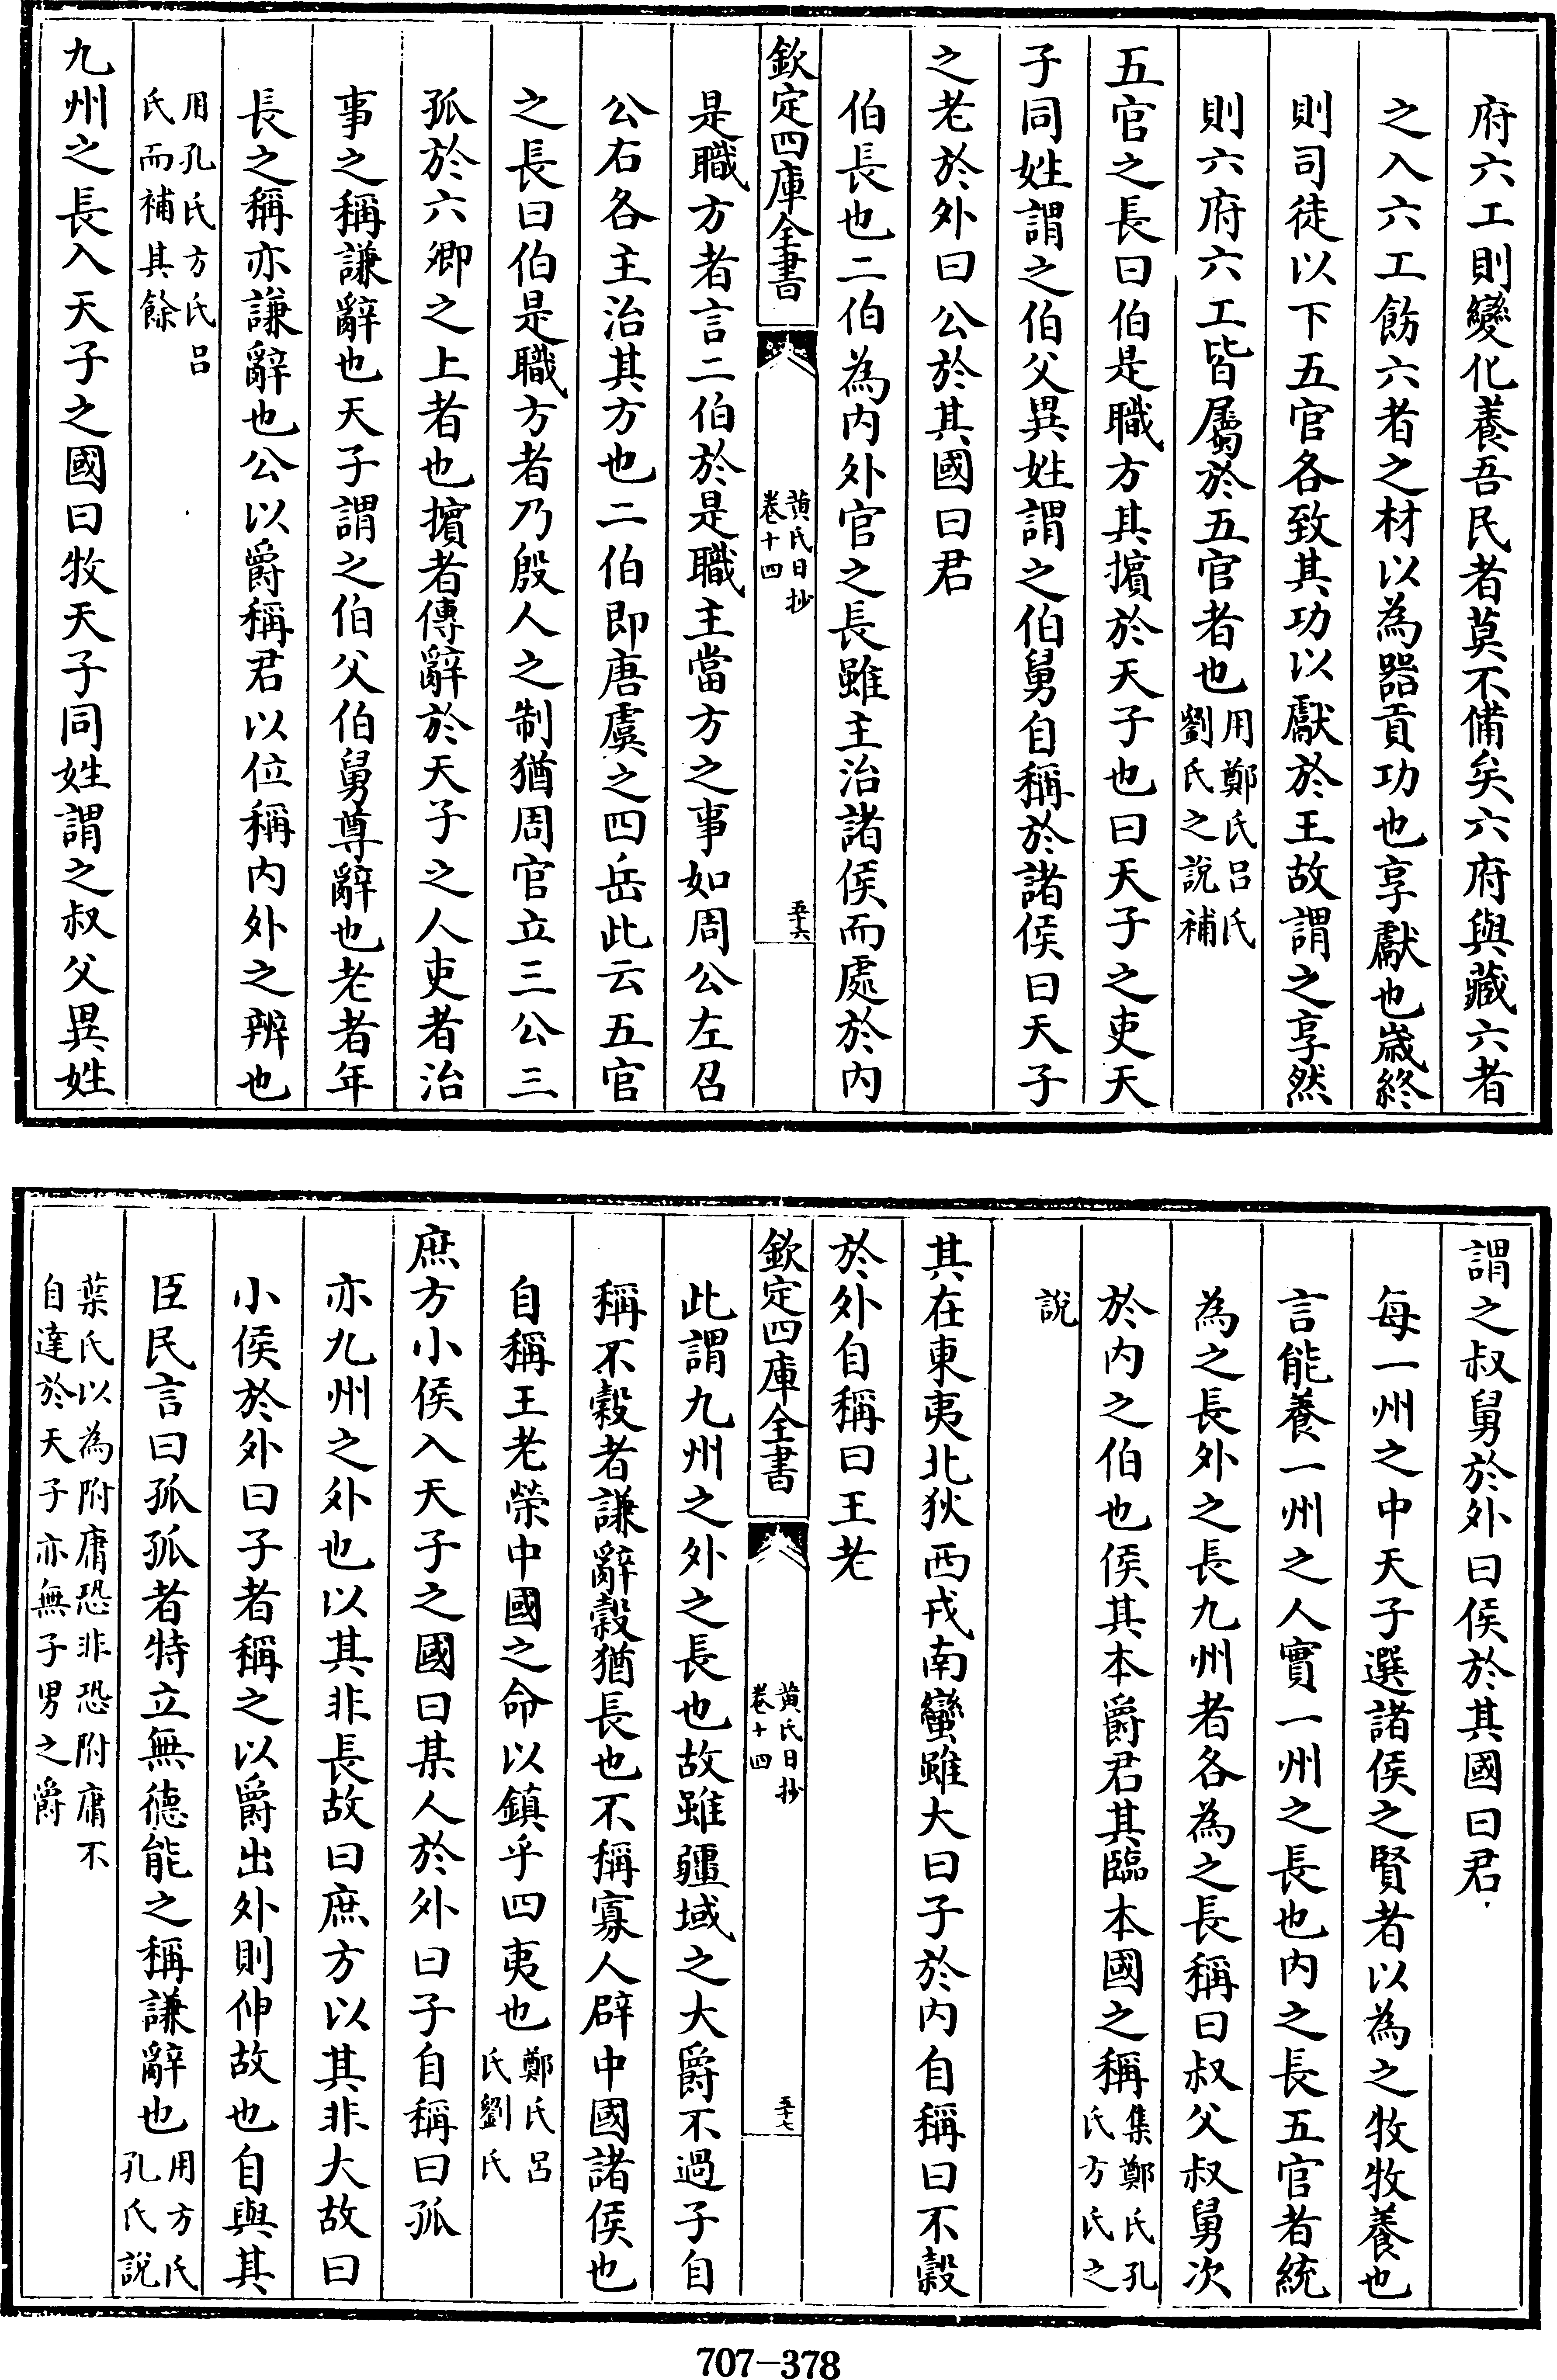 府六工則變化養吾民者莫不備矣六府與藏六者
之入六工飭六者之材以為器貢功也享獻也歲終
則司徒以下五官各致其功以獻於王故謂之享然
則六府六工皆屬於五官者也用鄭氏呂氏劉氏之說補
五官之長曰伯是職方其擯於天子也曰天子之吏天
子同姓謂之伯父異姓謂之伯舅自稱於諸侯曰天子
之老於外曰公於其國曰君
伯長也二伯為內外官之長雖主治諸侯而處於內
欽定四庫全書 黃氏日抄 卷十四 五十六
是職方者言二伯於是職主當方之事如周公左召
公右各主治其方也二伯即唐虞之四岳此云五官
之長曰伯是職方者乃殷人之制猶周官立三公三
孤於六卿之上者也擯者傳辭於天子之人吏者治
事之稱謙辭也天子謂之伯父伯舅尊辭也老者年
長之稱亦謙辭也公以爵稱君以位稱內外之辨也
用孔氏方氏呂氏而補其餘
九州之長入天子之國曰牧天子同姓謂之叔父異姓
謂之叔舅於外曰侯於其國曰君
每一州之中天子選諸侯之賢者以為之牧牧養也
言能養一州之人實一州之長也內之長五官者統
為之長外之長九州者各為之長稱曰叔父叔舅次
於內之伯也侯其本爵君其臨本國之稱集鄭氏孔氏方氏之
說
其在東夷北狄西戎南蠻雖大曰子於內自稱曰不穀
於外自稱曰王老
欽定四庫全書 黃氏日抄 卷十四 五十七
此謂九州之外之長也故雖疆域之大爵不過子自
稱不穀者謙辭穀猶長也不稱寡人辟中國諸侯也
自稱王老榮中國之命以鎮乎四夷也鄭氏呂氏劉氏
庶方小侯入天子之國曰某人於外曰子自稱曰孤
亦九州之外也以其非長故曰庶方以其非大故曰
小侯於外曰子者稱之以爵出外則伸故也自與其
臣民言曰孤孤者特立無德能之稱謙辭也用方氏孔氏說
葉氏以為附庸恐非恐附庸不自達於天子亦無子男之爵
707-378